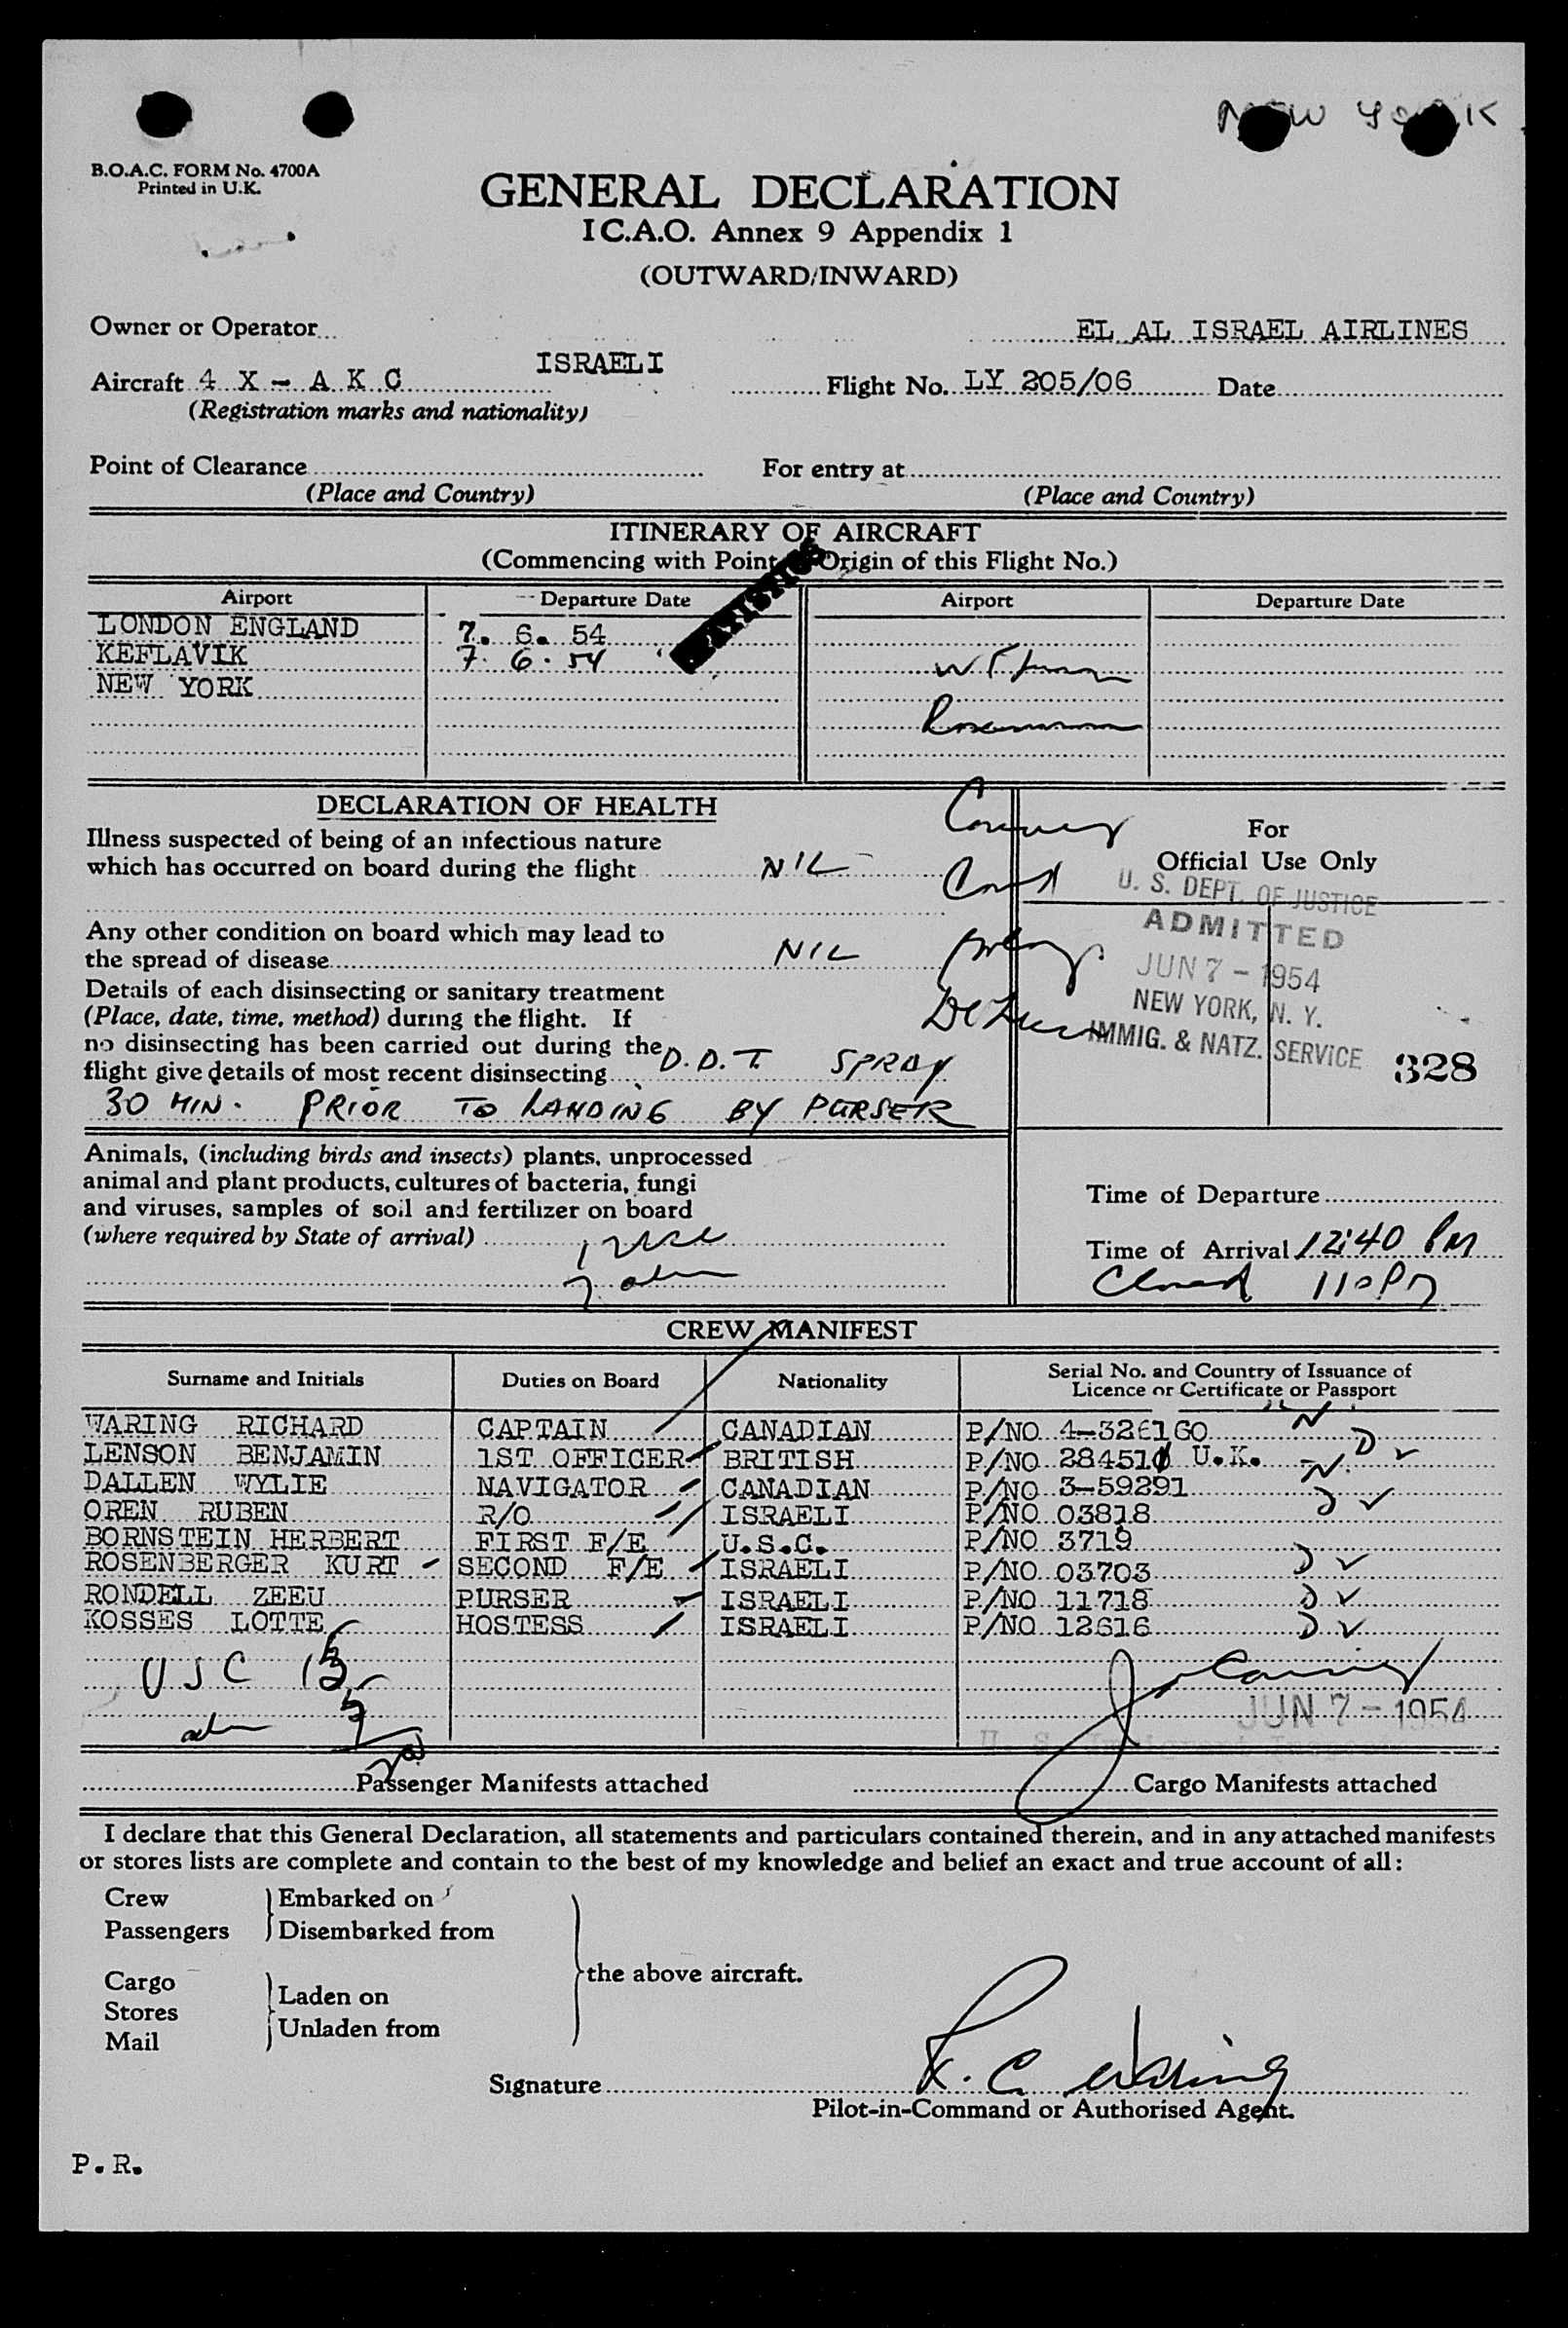 NEW YORK
B.O.A.C. FORM No. 4700A
Printed in U.K.
GENERAL DECLARATION
I C.A.O. Annex 9 Appendix 1
(OUTWARD/INWARD)
Owner or Operator EL AL ISRAEL AIRLINES
Aircraft 4 X - A K C ISRAELI Flight No. LY 205/06 Date
(Registration marks and nationality)
Point of Clearance For entry at
(Place and Country) (Place and Country)
ITINERARY OF AIRCRAFT
(Commencing with Point Origin of this Flight No.)
Airport Departure Date Airport Departure Date
LONDON ENGLAND 7. 6. 54
KEFLAVIK 7. 6. 54
NEW YORK
DECLARATION OF HEALTH
Illness suspected of being of an infectious nature
which has occurred on board during the flight NIL
Any other condition on board which may lead to
the spread of disease NIL
Details of each disinsecting or sanitary treatment
(Place, date, time, method) during the flight. If
no disinsecting has been carried out during the
flight give details of most recent disinsecting D.D.T. SPRAY
30 MIN. PRIOR TO LANDING BY PURSER
For
Official Use Only
U. S. DEPT. OF JUSTICE
ADMITTED
JUN 7 - 1954
NEW YORK, N. Y.
IMMIG. & NATZ. SERVICE
328
Animals, (including birds and insects) plants, unprocessed
animal and plant products, cultures of bacteria, fungi
and viruses, samples of soil and fertilizer on board
(where required by State of arrival)
Time of Departure
Time of Arrival 12:40 PM
Closed 110 PM
CREW MANIFEST
Surname and Initials Duties on Board Nationality Serial No. and Country of Issuance of
Licence or Certificate or Passport
WARING RICHARD CAPTAIN CANADIAN P/NO 4-326160 N
LENSON BENJAMIN 1ST OFFICER BRITISH P/NO 284510 U.K. D ✓
DALLEN WYLIE NAVIGATOR CANADIAN P/NO 3-59291 N.
OREN RUBEN R/O ISRAELI P/NO 03818 D ✓
BORNSTEIN HERBERT FIRST F/E U.S.C. P/NO 3719
ROSENBERGER KURT SECOND F/E ISRAELI P/NO 03703 D ✓
RONDELL ZEEU PURSER ISRAELI P/NO 11718 D ✓
KOSSES LOTTE HOSTESS ISRAELI P/NO 12616 D ✓
USC
JUN 7 - 1954
Passenger Manifests attached Cargo Manifests attached
I declare that this General Declaration, all statements and particulars contained therein, and in any attached manifests
or stores lists are complete and contain to the best of my knowledge and belief an exact and true account of all:
Crew Embarked on
Passengers Disembarked from
the above aircraft.
Cargo
Stores Laden on
Mail Unladen from
Signature R. C. Waring
Pilot-in-Command or Authorised Agent.
P.R.